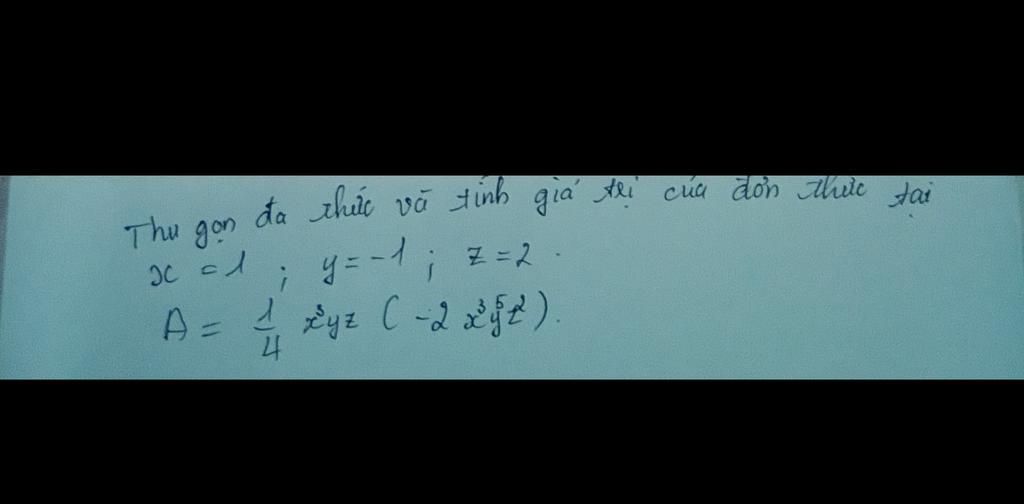 Thu gọn đa thức và tính giá trị của đơn thức tại
x = 1 ; y = -1 ; z = 2 .
A = 1/4 x³yz ( -2 x³y⁵z² ).